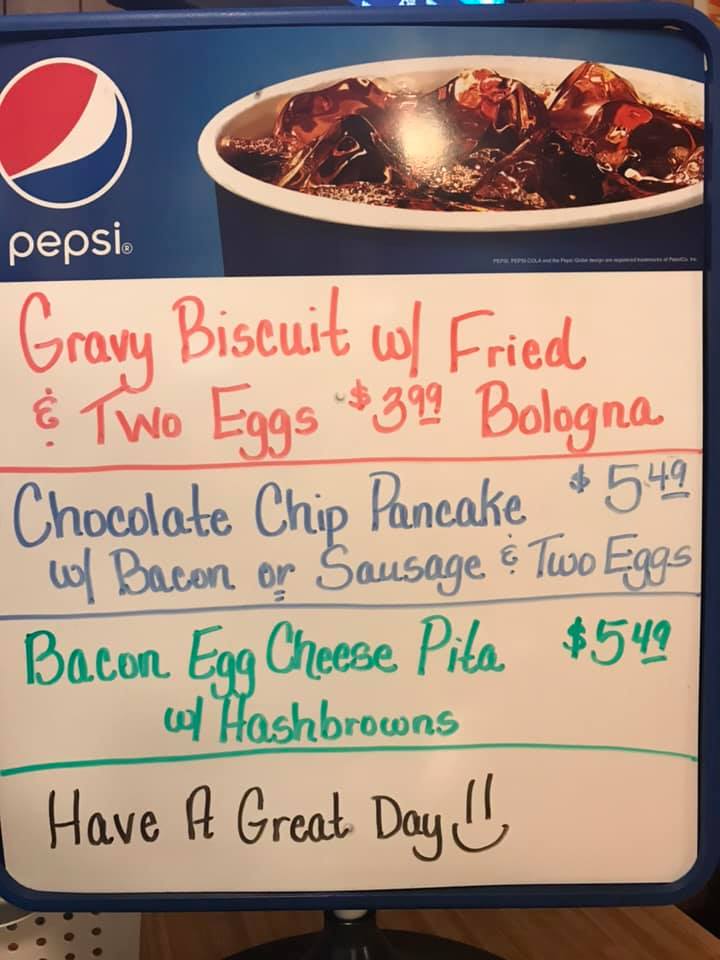 pepsi®
PEPSI, PEPSI-COLA and the Pepsi Globe design are registered trademarks of PepsiCo, Inc.
Gravy Biscuit w/ Fried
& Two Eggs $3.99 Bologna
Chocolate Chip Pancake $5.49
w/ Bacon or Sausage & Two Eggs
Bacon Egg Cheese Pita $5.49
w/ Hashbrowns
Have A Great Day!!